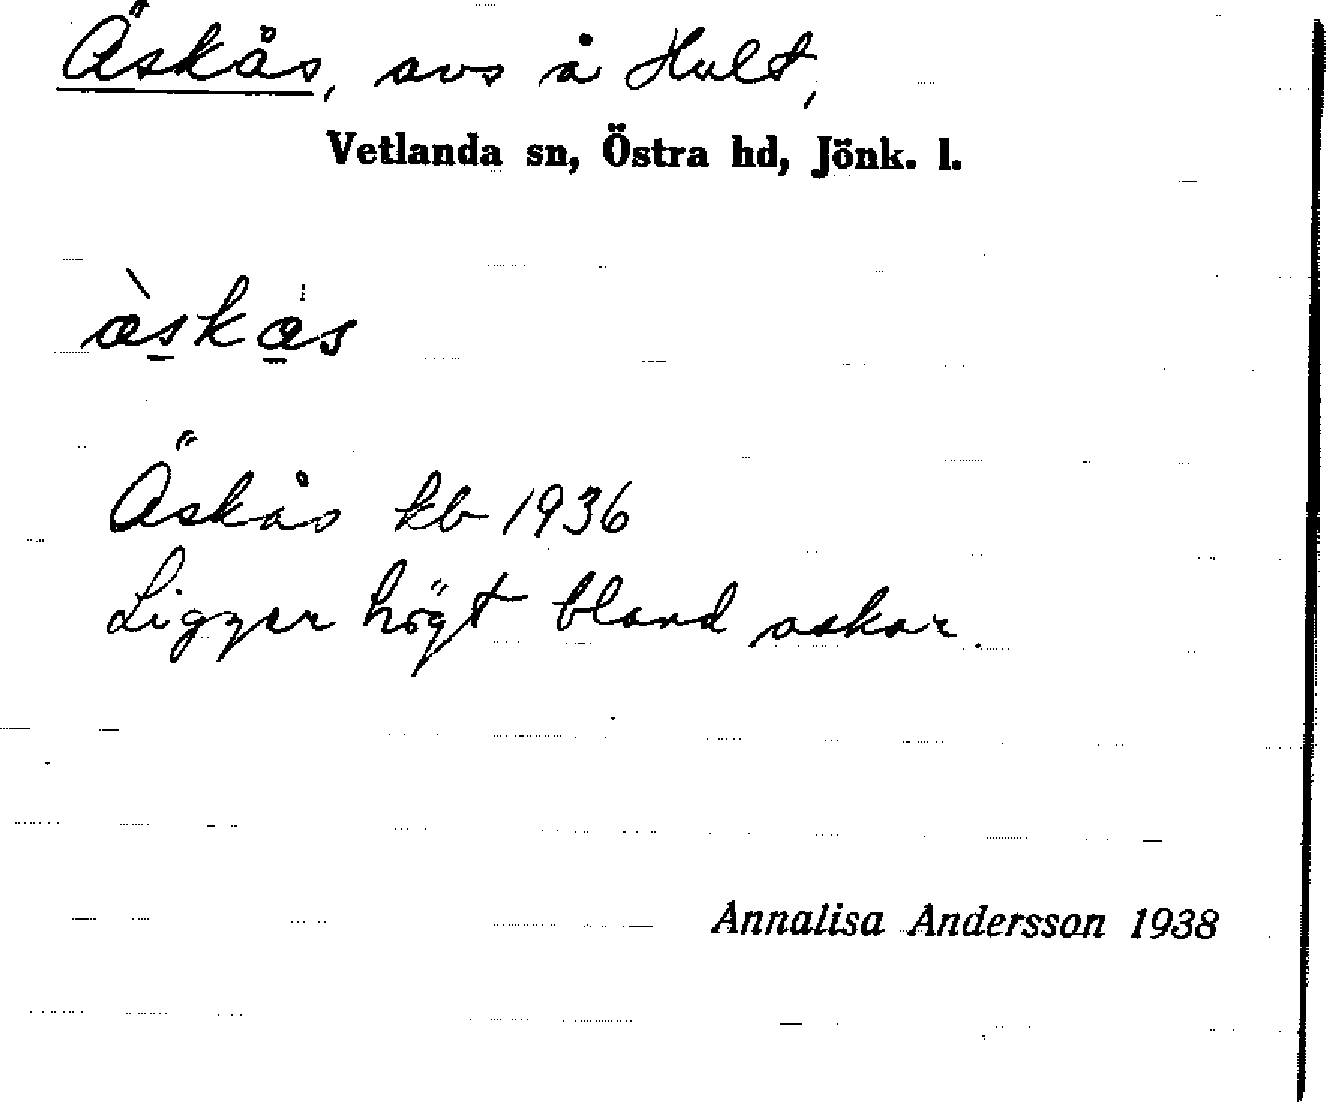 Äskås, avs å Hult,
Vetlanda sn, Östra hd, Jönk. l.
æ̀skås
Äskås kb 1936
Ligger högt bland askar.
Annalisa Andersson 1938